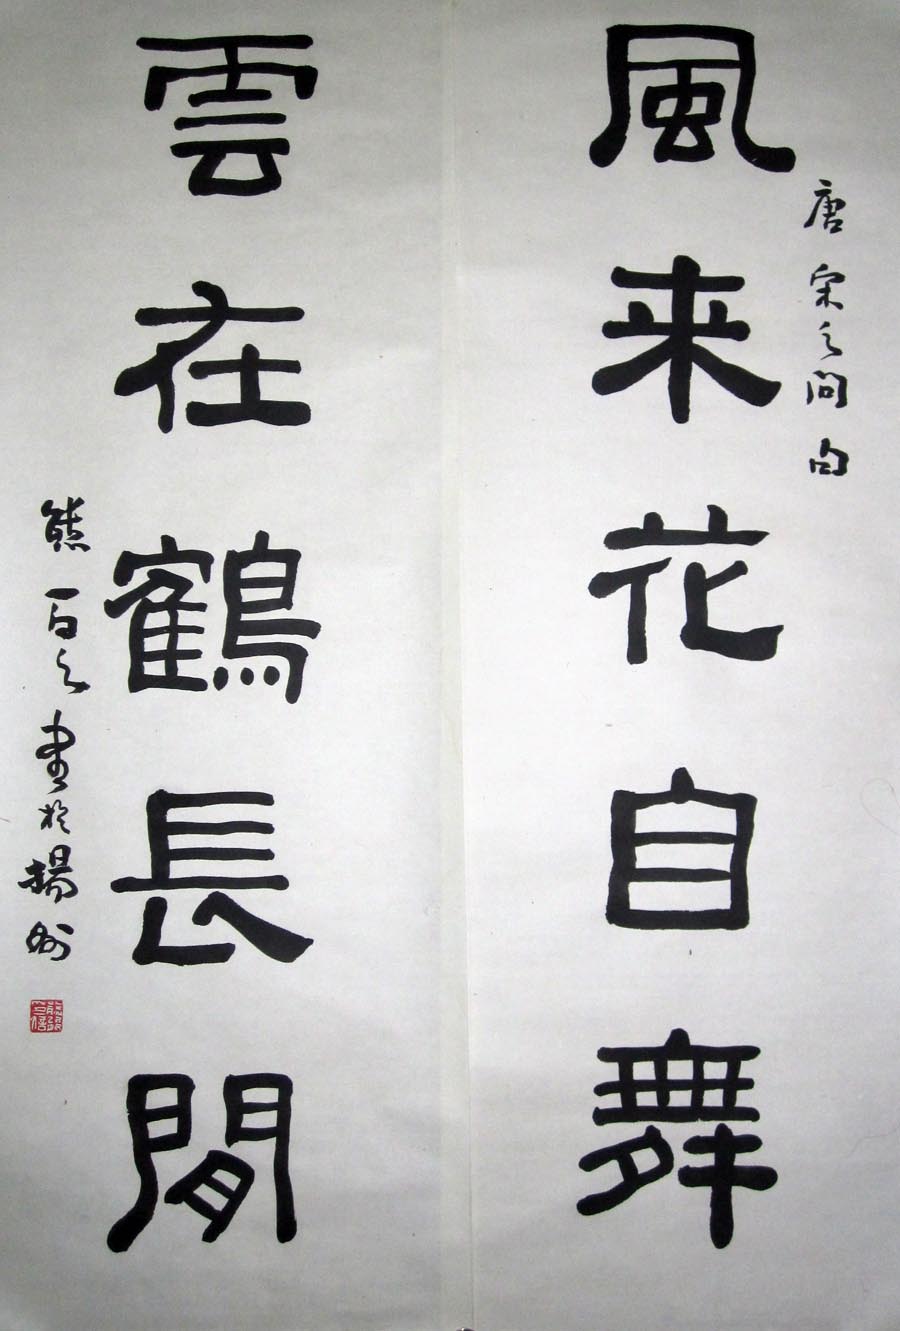 風来花自舞
唐宋之問句
雲在鶴長閒
熊百之書於揚州